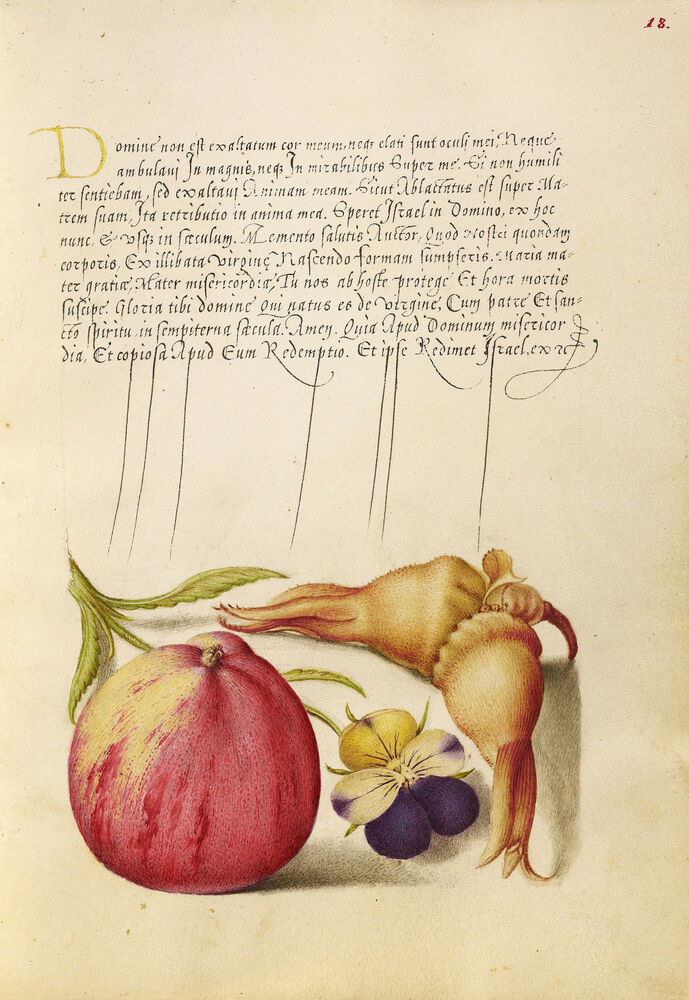 18.
Domine non est exaltatum cor meum, neq; elati sunt oculi mei, Neque
ambulavi In magnis, neq; In mirabilibus Super me. Si non humili
ter sentiebam, sed exaltaui Animam meam. Sicut Ablactatus est super Ma-
trem suam, Ita retributio in anima mea. Speret Israel in Domino, ex hoc
nunc, & vsq; in sæculum. Memento salutis Auctor, Quod Nostri quondam
corporis, Ex illibata virgine Nascendo formam sumpseris. Maria ma-
ter gratiæ, Mater misericordiæ, Tu nos ab hoste protege Et hora mortis
suscipe. Gloria tibi domine Qui natus es de virgine, Cum patre Et san-
cto spiritu, in sempiterna sæcula. Amen. Quia Apud Dominum misericor
dia, Et copiosa Apud Eum Redemptio. Et ipse Redimet Israel, ex